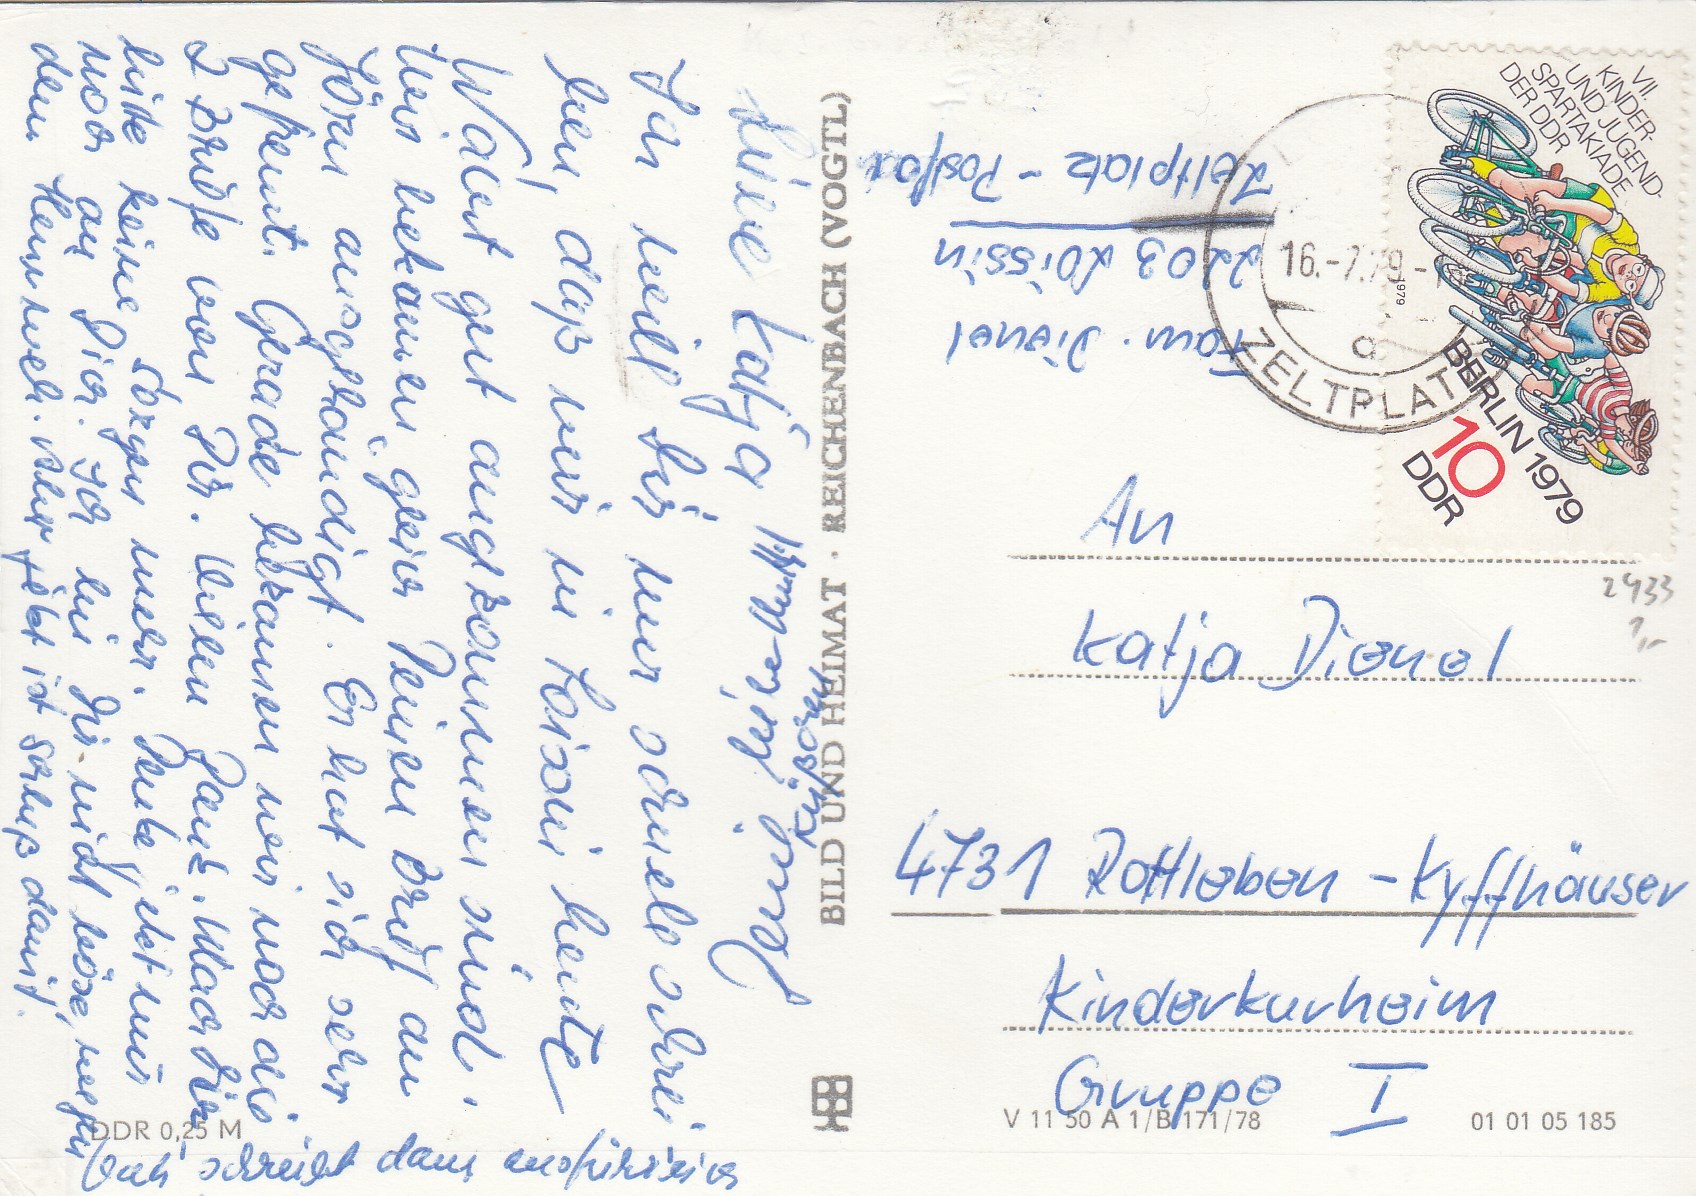 Liebe Katja
Ich will Dir nur schnell schrei
ben, daß wir in Loissin heute
Nacht gut angekommen sind.
Wir bekamen gleich Deinen Brief an
Jörn ausgehändigt. Er hat sich sehr
gefreut. Gerade bekamen wir noch die
2 Briefe von Dir. Vielen Dank. Mach Dir
bitte keine Sorgen mehr.
noch an Dich. Ich bin Dir nicht böse, wegen
dem Heimweh. Aber jetzt ist Schluß damit.
Vati schreibt dann ausführlich
BILD UND HEIMAT · REICHENBACH (VOGTL)
Fam. Dienel
2203 Loissin
Zeltplatz - Postfach
VII.
KINDER-
UND JUGEND-
SPARTAKIADE
DER DDR
BERLIN 1979
10
DDR
1979
16.-7.79.-
a
ZELTPLATZ
An
2433
1,-
Katja Dienel
4731 Rottleben - Kyffhäuser
Kinderkurheim
Gruppe I
DDR 0,25 M
V 11 50 A 1/B 171/78
01 01 05 185